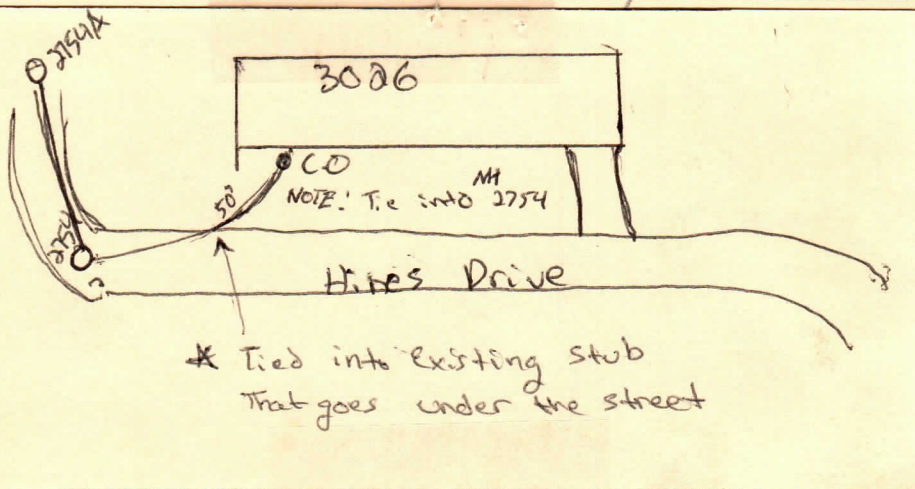 2754A
3026
CO
MH
NOTE: Tie into 2754
50'
2754
Hines Drive
* Tied into Existing Stub
That goes under the street